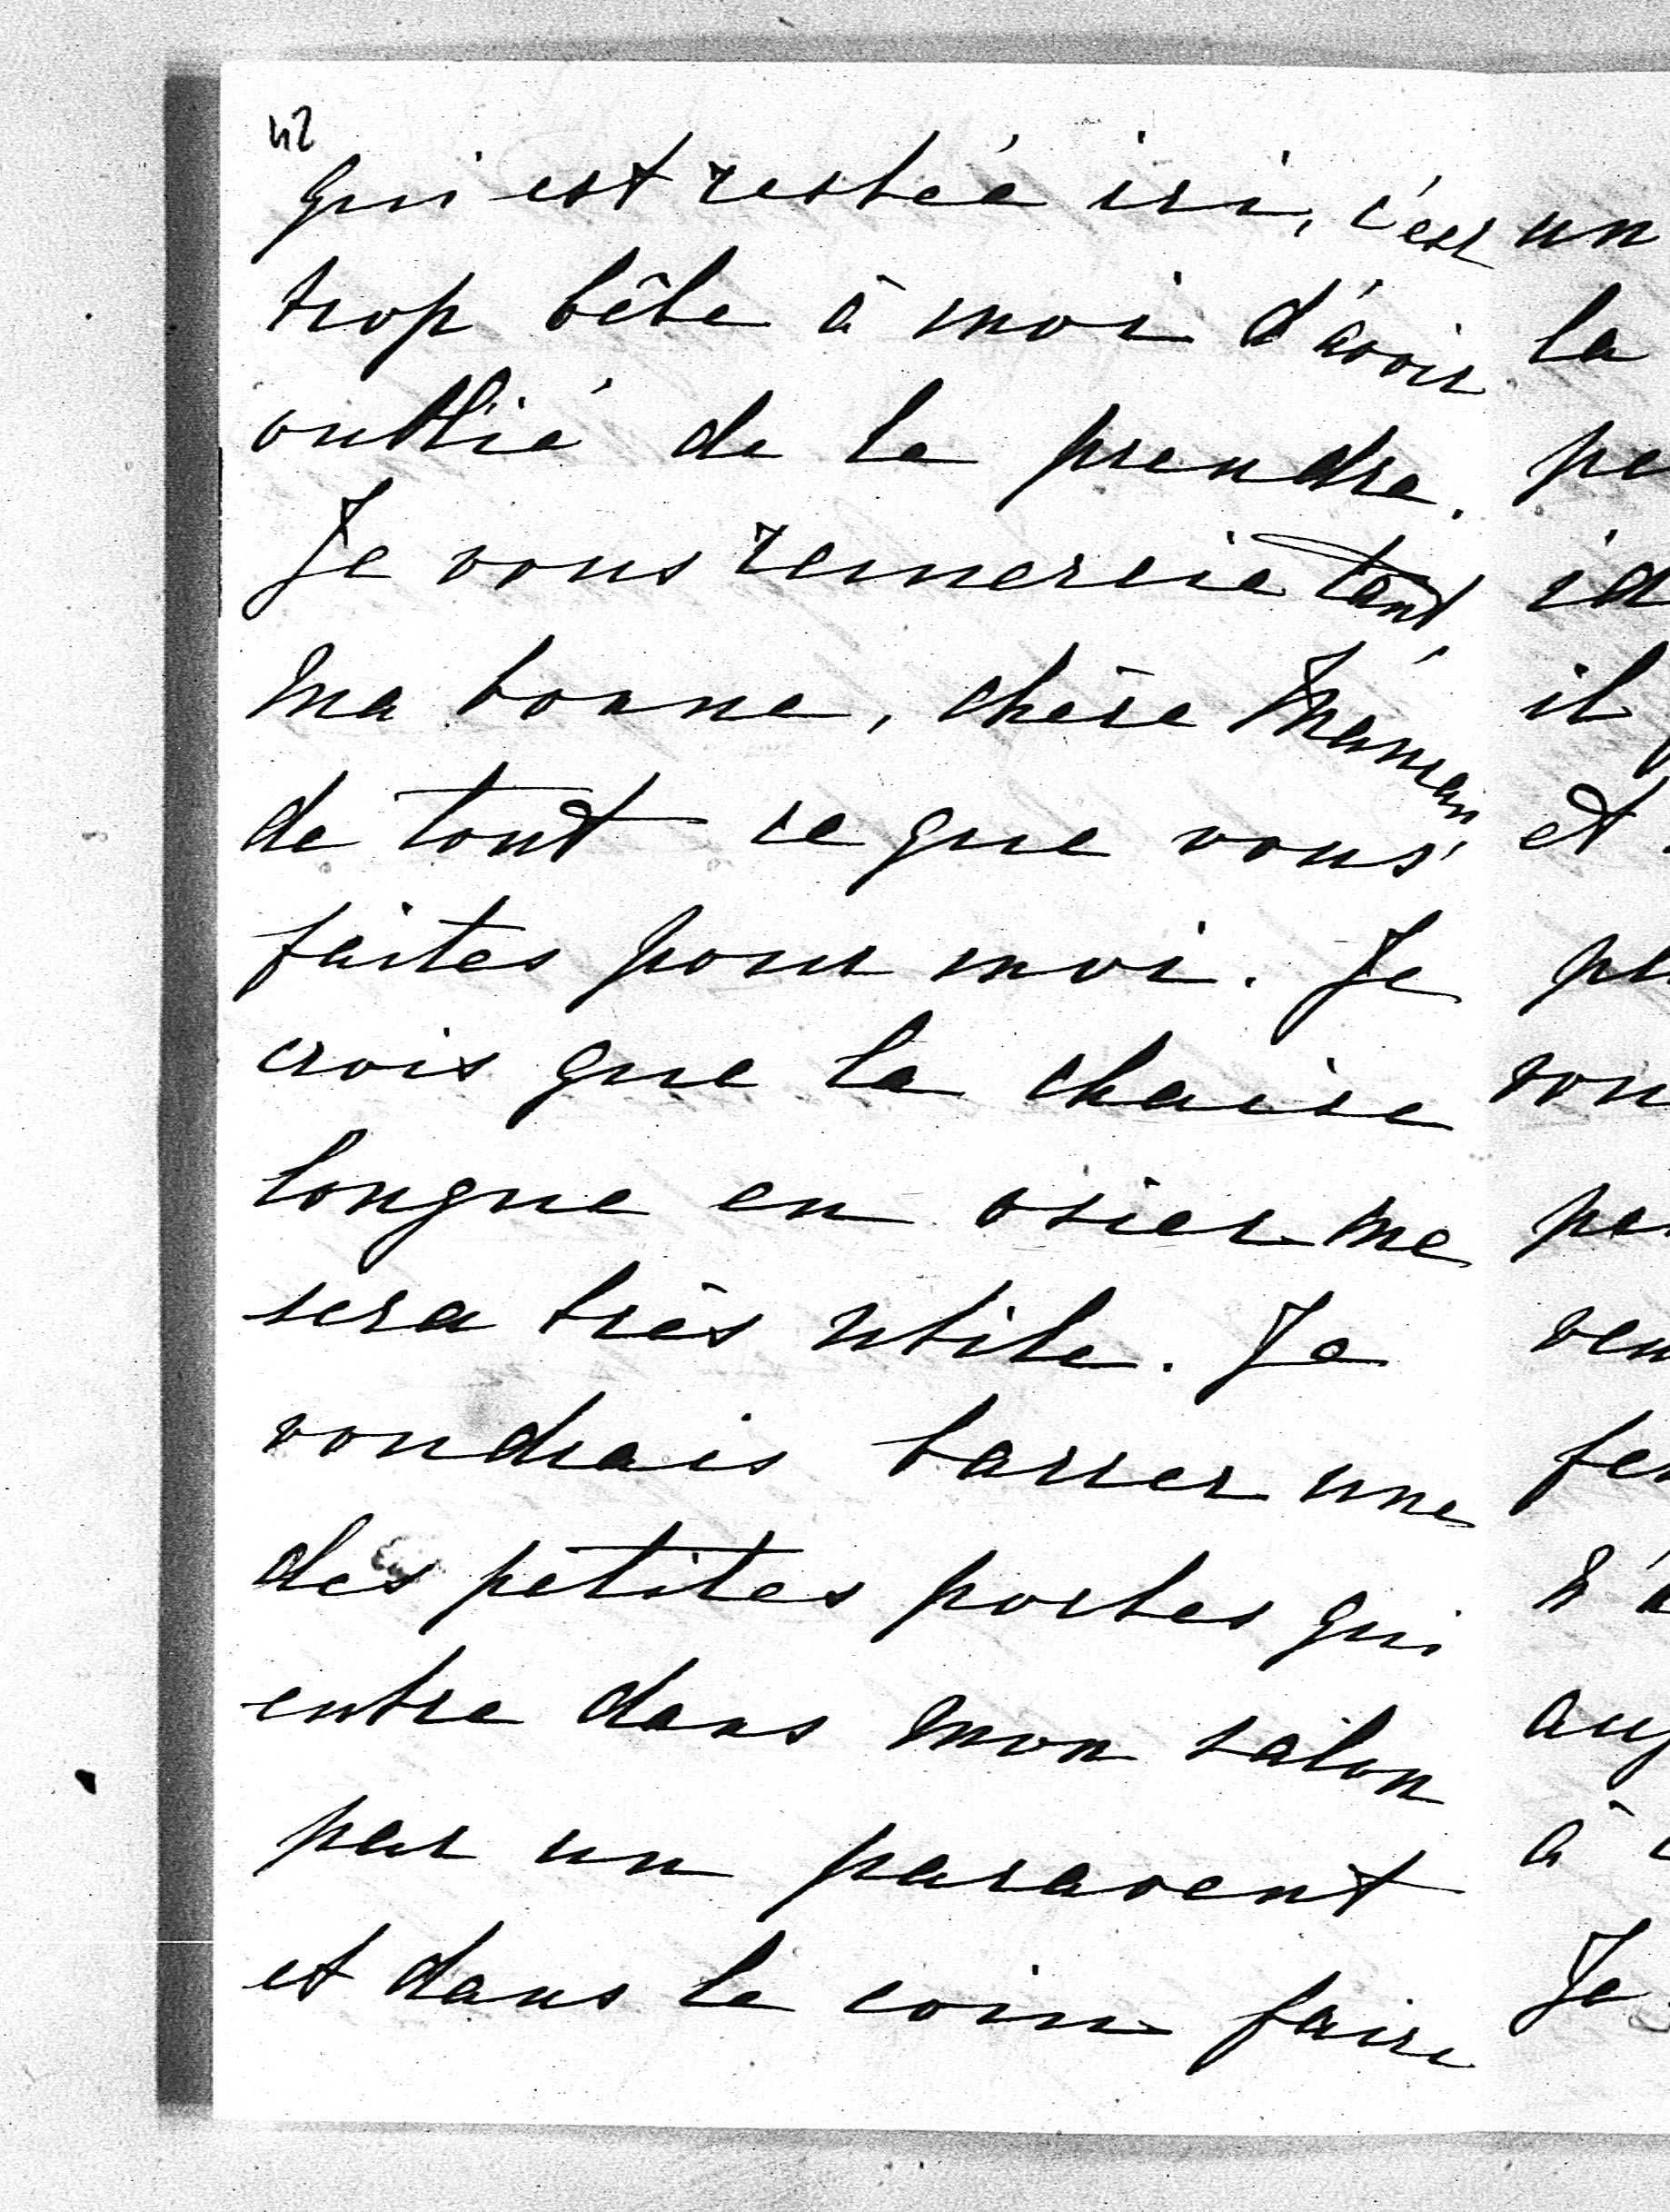 42
qui est restée ici, c'est
trop bête à moi d'avoir
oublié de le prendre.
Je vous remercie tant,
ma bonne, chère Maman
de tout ce que vous
faites pour moi. Je
crois que la chaise
longue en osier me
sera très utile. Je
voudrais barrer une
des petites portes qui
entre dans mon salon
par un paravent
et dans le coin faire
un
la
pe
id
il
et
vou
per
fer
n'a
à
Je